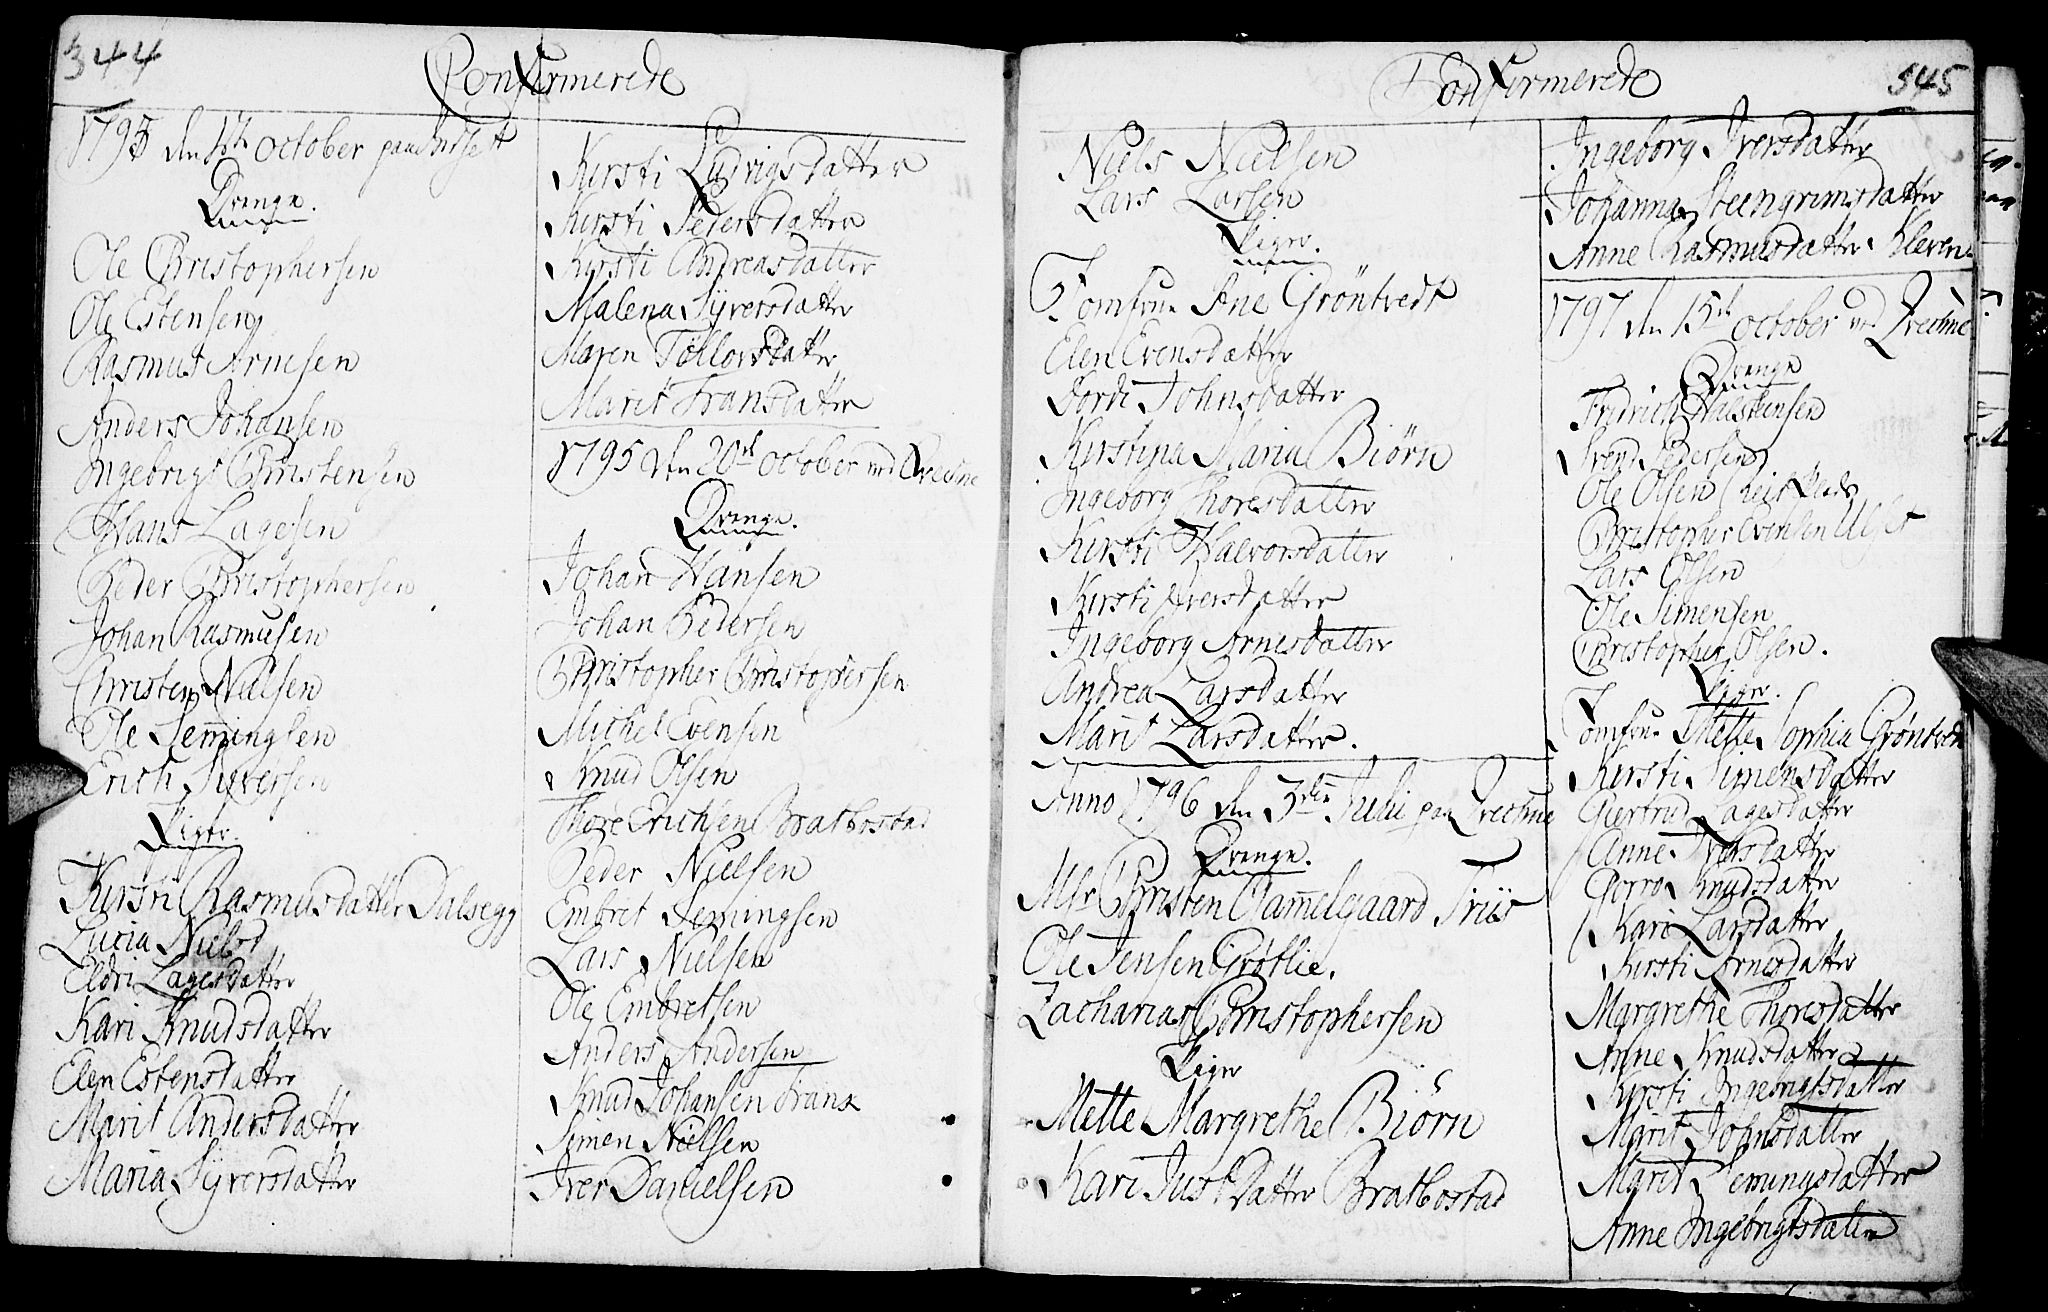 344
Confirmerede
1795 den October paa
Drenge.
Ole Christophersen
Ole Estensen
Rasmus Arnesen
Anders Johansen
Ingebrigt Christensen
Hans Lagesen
Peder Christophersen
Johan Rasmusen
Christen Nielsen
Ole Semingsen
Erich Siversen
Piger.
Kirsti Rasmusdatter Dalsegg
Lucia Nielsd
Eldri Lagesdatter
Kari Knudsdatter
Elen Estensdatter
Marit Andersdatter
Maria Syversdatter
Kirsti Ludvigsdatter
Kirsti Pedersdatter
Kirsti Andreasdatter
Malena Syversdatter
Maren Tollovsdatter
Marit Fransdatter
1795 den 20de October ved Qvechne
Drenge.
Johan Hansen
Johan Pedersen
Christopher Christophersen
Michel Evensen
Knud Olsen
Thore Erichsen Bratbostad
Peder Nielsen
Embret Semingsen
Lars Nielsen
Ole Embretsen
Anders Andersen
Knud Johansen
Simen Nielsen
Iver Danielsen
Confirmerede
345
Niels Nielsen
Lars Larsen
Piger.
Jomfru Ane Gröntvedt
Elen Evensdatter
Jordi Johnsdatter
Kirstina Maria Biörn
Ingeborg Thoresdatter
Kirsti Halvorsdatter
Kirsti Iversdatter
Ingeborg Arnesdatter
Andrea Larsdatter
Marit Larsdatter.
Anno 1796 den 3die Julii paa Qvechne
Drenge.
Msr Christen Gammelgaard Friis
Ole Jensen Grötlie.
Zacharias Christophersen
Piger
Mette Margrethe Biörn
Kari Justdatter Bratbostad
Ingeborg Iversdatter
Johanna Steengrimsdatter
Anne Rasmusdatter Kleven.
1797 den 15de October ved Qvechne
Drenge
Fridrich Halsteensen
Svend Pedersen
Ole Olsen
Christopher Evensen
Lars Olsen
Ole Simensen
Christopher Olsen.
Piger.
Jomfru Mette Sophia Gröntvedt
Kirsti Simensdatter
Giertrud Lagesdatter
Anne Iversdatter
Gorro Knudsdatter
Kari Larsdatter
Kirsti Arnesdatter
Margrethe Thoresdatter
Anne Knudsdatter
Kirsti Ingebrigtsdatter
Marit Johnsdatter
Marit Semingsdatter
Anne Ingebrigtsdatter